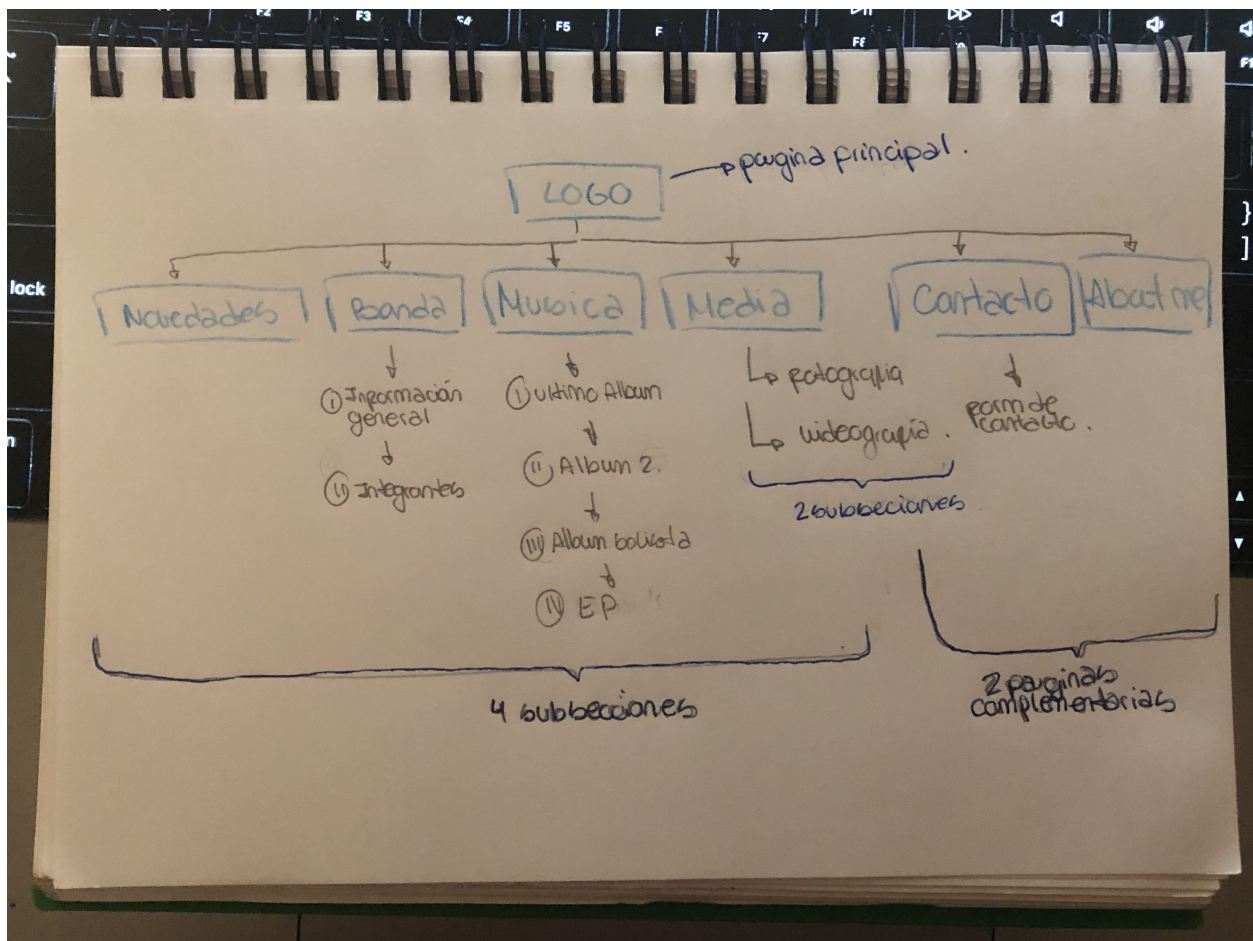 F2
F3
F4
F5
F7
F8
F1
lock
}
]
LOGO
pagina principal.
Novedades
Banda
Mussica
Media
Contacto
About me
I Información
general
II Integrantes
I ultimo Album
II Album 2.
III Album
IV EP
fotografia
videografía.
2 subsecciones
form de
contacto.
4 subsecciones
2 paginas
complementarias